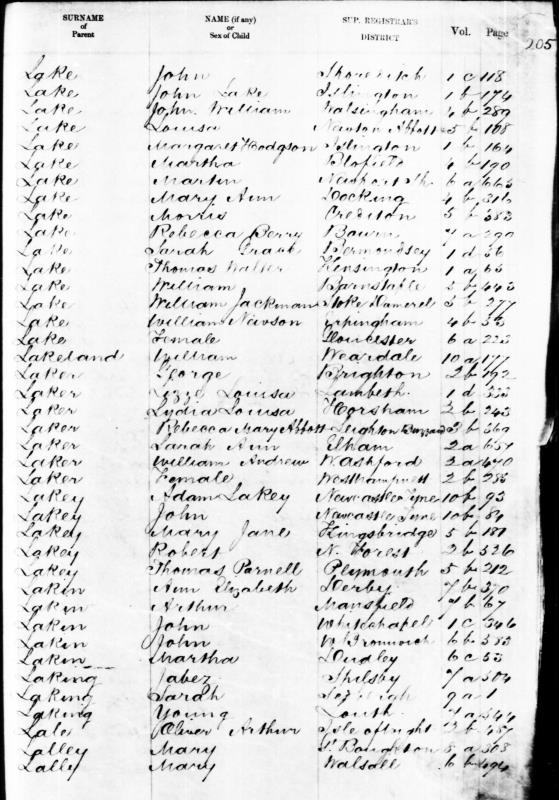 205
SURNAME of Parent NAME (if any) or Sex of Child SUP. REGISTRAR'S DISTRICT Vol. Page
Lake John Shoreditch 1 c 118
Lake John Lake Islington 1 b 174
Lake John William Walsingham 4 b 289
Lake Louisa Newton Abbott 5 b 108
Lake Margaret Hodgson Islington 1 b 164
Lake Martha Blofield 4 b 190
Lake Martin Newport Sh. 6 a
Lake Mary Ann Docking 4 b 316
Lake Morris Crediton 5 b 383
Lake Rebecca Berry Bourn 7 a 290
Lake Sarah Bermondsey 1 d 36
Lake Thomas Walter Kensington 1 a 63
Lake William Barnstable 5 b 443
Lake William Jackman Stoke Damerel 5 b 277
Lake William Nawson Erpingham 4 b
Lake Female Gloucester 6 a
Lakeland William Weardale 10 a 177
Laker George Brighton 2 b 192
Laker Lizze Louisa Lambeth 1 d
Laker Lydia Louisa Horsham 2 b 243
Laker Rebecca Mary Abbott Leighton Buzzard 3 b 369
Laker Sarah Ann Elham 2 a
Laker William Andrew W. Ashford 2 a
Laker Female Westhampnett 2 b 285
Lakey Adam Lakey Newcastle Tyne 10 b 93
Lakey John Newcastle Tyne 10 b 84
Lakey Mary Jane Kingsbridge 5 b 181
Lakey Robert N. Forest 2 b 526
Lakey Thomas Parnell Plymouth 5 b 212
Lakin Ann Elizabeth Derby 7 b 370
Lakin Arthur Mansfield 7 b 67
Lakin John Whitechapel 1 c 346
Lakin John W. Bromwich 6 b 583
Lakin Martha Dudley 6 c 53
Laking Jabez Spilsby 7 a 504
Laking Sarah 9 a 1
Laking Young Louth 7 a 544
Lale Oliver Arthur Isle of Wight 2 b 487
Lalley Mary P. Boughton 8 a 308
Lally Mary Walsall 6 b